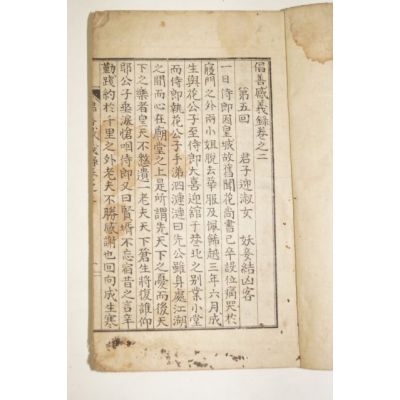 倡善感義錄卷之二
第五回 君子迎淑女 妖妾結凶客
一日侍郎因皇城故舊聞花尚書已卒設位痛哭於
寢門之外兩小姐脫去華服及佩飾越三年六月成
生與花公子至侍郎大喜迎舘于莊北之別業小堂
而侍郎執花公子手涕泗漣漣曰先公雖身處江湖
之間而心在廟堂之上是所謂先天下之憂而後天
下之樂者皇天不憖遺一老夫天下蒼生將復誰仰
耶公子垂淚愴咽侍郎又曰賢壻不忘宿昔之言辛
勤踐約於千里之外老夫不勝感謝也回向成生寒